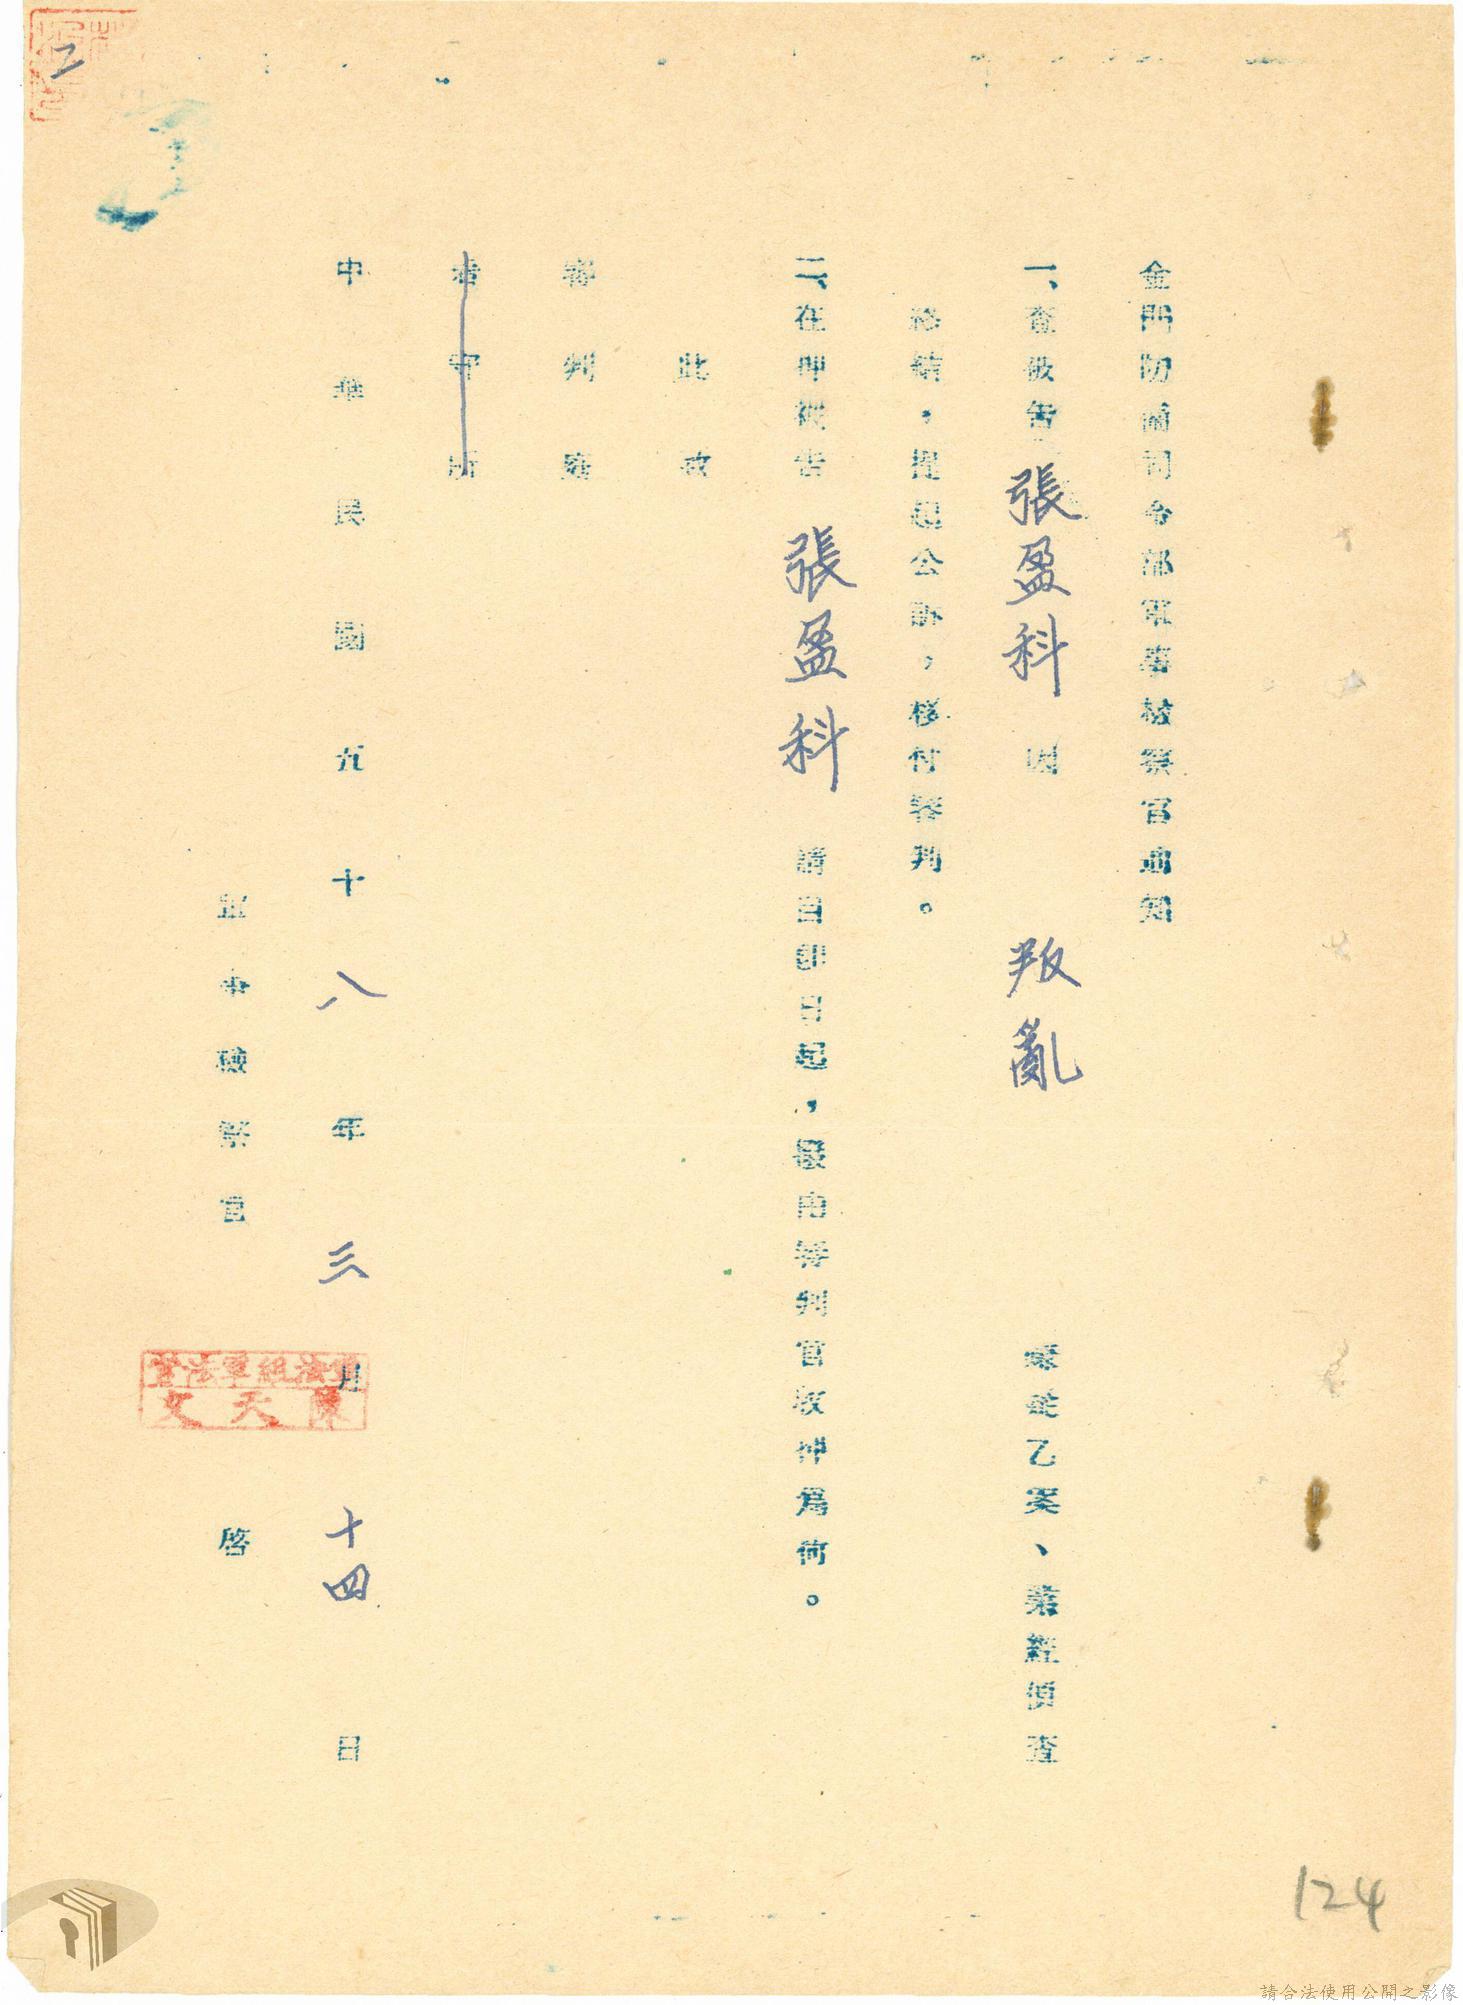 金門防衛司令部軍事檢察官通知
一、查被告張盈科因 叛亂 嫌疑乙案、業經偵查
終結，提起公訴，移付審判。
二、在押被告 張盈科 請自即日起，發由審判官收押為荷。
此致
審判庭
看守所
中華民國五十八年三月十四日
軍事檢察官 啓
軍法組軍法官
陳天文
124
請合法使用公開之影像